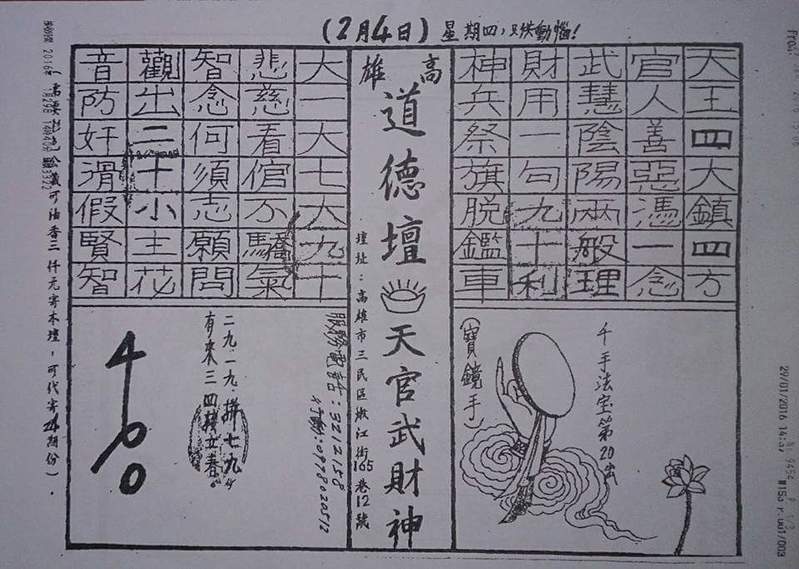 (2月4日) 星期四,只供動惱!
天王四大鎮四方
官人善惡憑一念
武慧陰陽兩般理
財用一句九十利
神兵祭旗脱鑑車
千手法宝第20
(寶鏡手)
高雄
道德壇 天官武財神
壇址:高雄市三民區嫩江街165巷12號
大一大七大九十
悲慈看倌不驕氣
智念何須志願問
觀出二十小主花
音防奸滑假賢智
服務電話:3212158
行動:0978020512
二九.一九.拼七九
有來三四接立春
400
可油香三仟元寄本壇,可代寄24期份).
29/01/2016